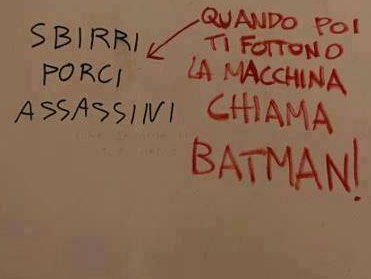 SBIRRI
PORCI
ASSASSINI
QUANDO POI
TI FOTTONO
LA MACCHINA
CHIAMA
BATMAN!